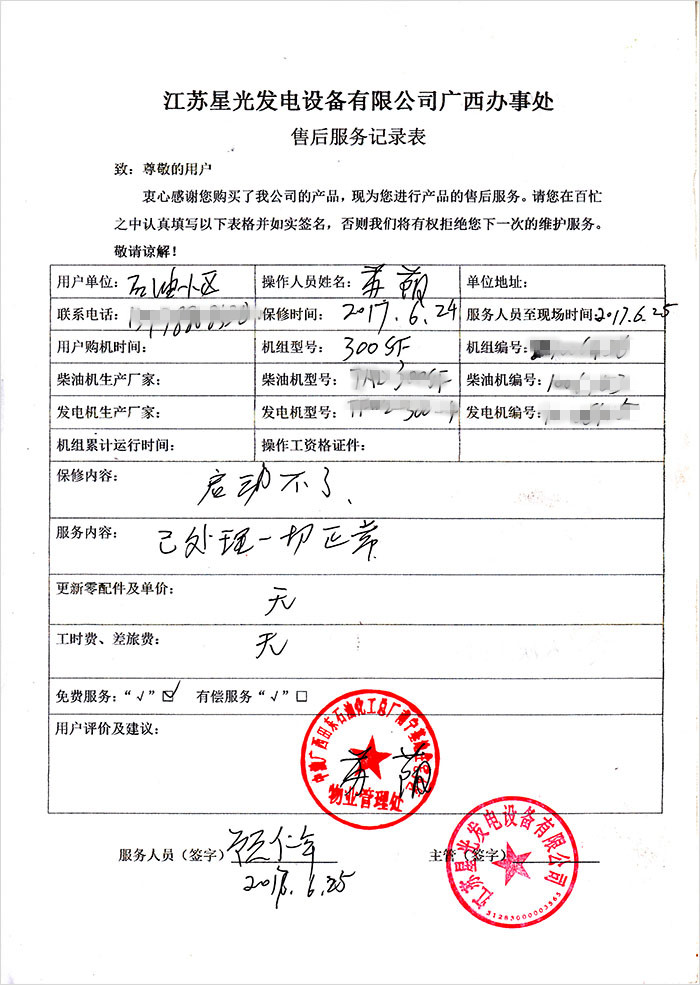 江苏星光发电设备有限公司广西办事处
售后服务记录表
致：尊敬的用户
衷心感谢您购买了我公司的产品，现为您进行产品的售后服务。请您在百忙
之中认真填写以下表格并如实签名，否则我们将有权拒绝您下一次的维护服务。
敬请谅解！
用户单位：石油小区 操作人员姓名： 单位地址：
联系电话： 保修时间：2017.6.24 服务人员至现场时间：2017.6.25
用户购机时间： 机组型号：300SF 机组编号：
柴油机生产厂家： 柴油机型号： 柴油机编号：
发电机生产厂家： 发电机型号： 发电机编号：
机组累计运行时间： 操作工资格证件：
保修内容： 启动不了、
服务内容： 已处理一切正常
更新零配件及单价： 无
工时费、差旅费： 无
免费服务：“√”☑ 有偿服务“√”□
用户评价及建议：
物业管理处
服务人员（签字） 主管（签字）
2017.6.25
江苏星光发电设备有限公司